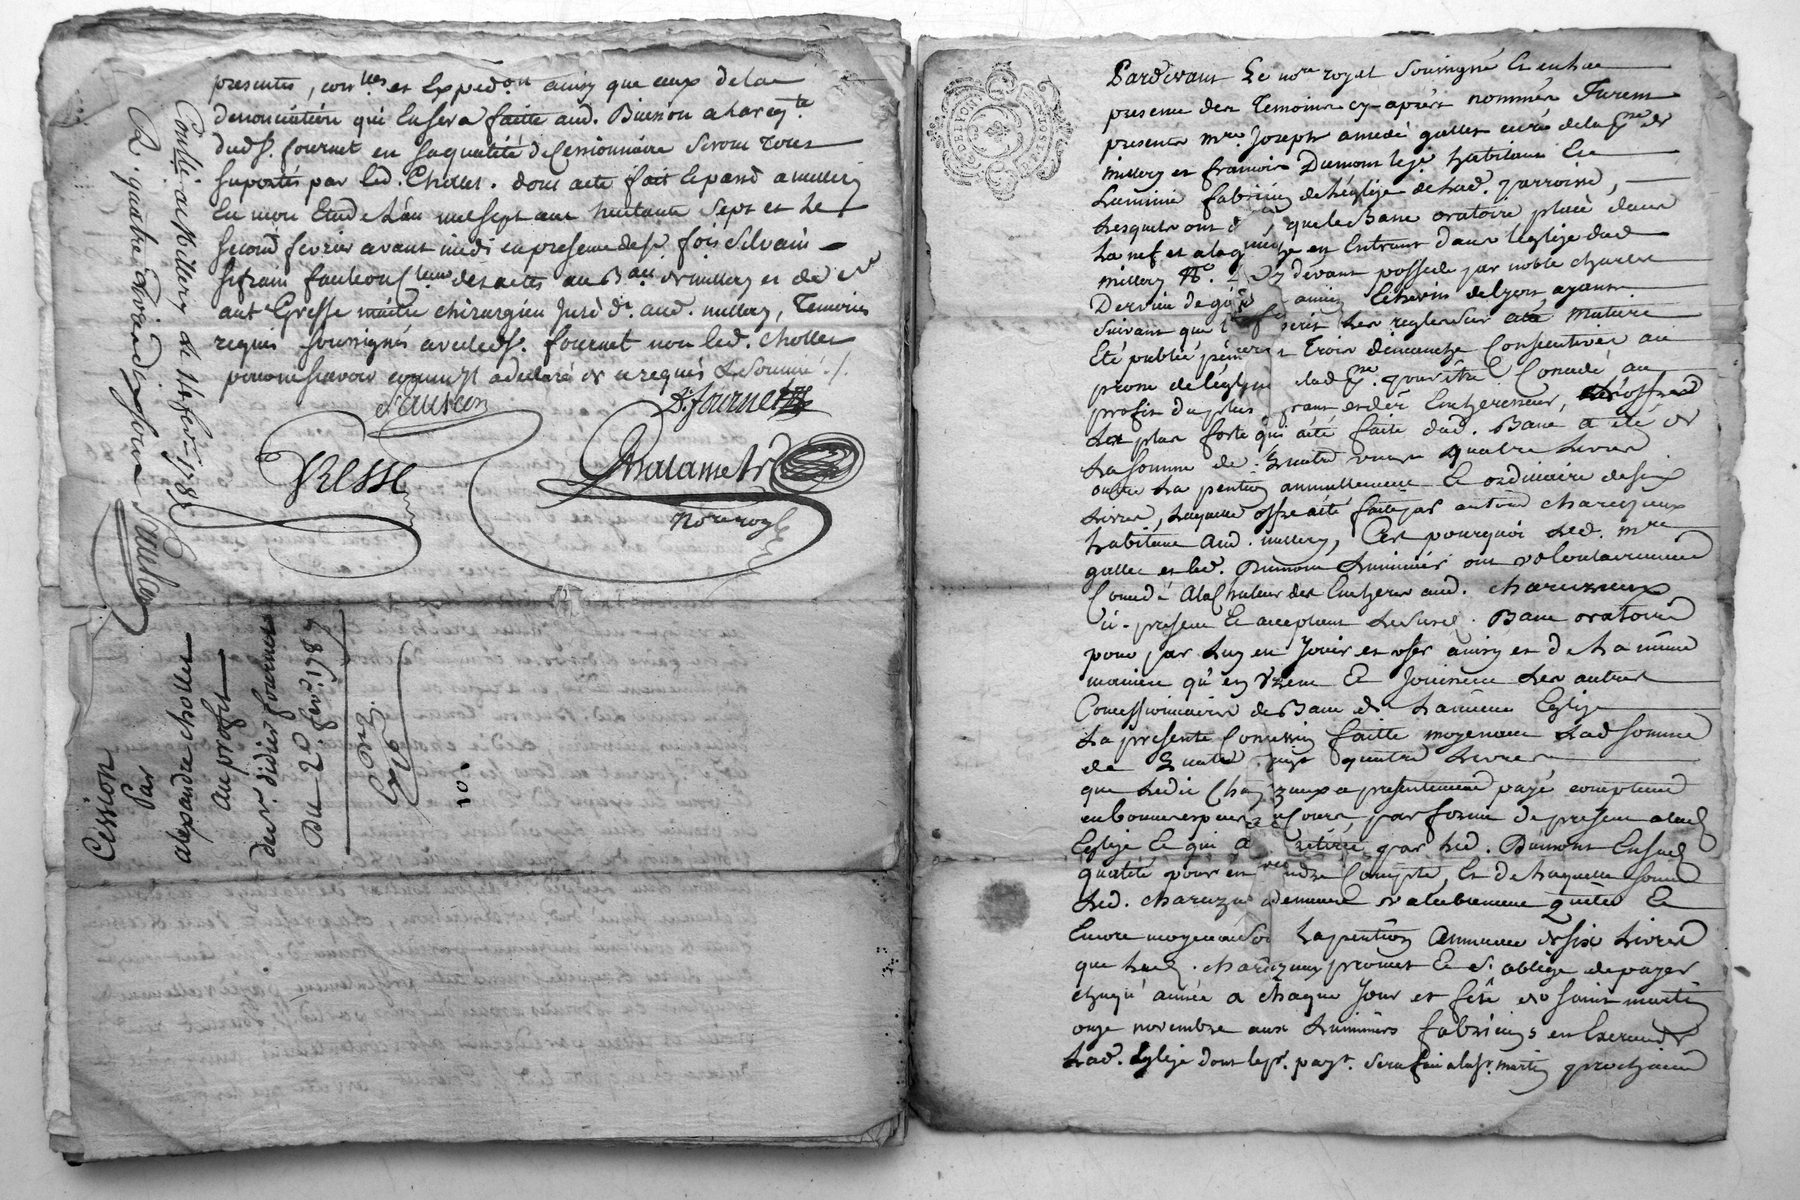 presentes, con.lles et Expedon ainsy que ceux de la
denonciation qui En sera faitte aud. Buisson a la req.te
dud. Sr. fournet en saqualité de Cessionnaire seront tous
suportés par led. Chollet. dont acte fait Et passé a millery
En mon Etude L'an mil sept cent huitante sept et Le
second fevrier avant midi en presence de sr. fois Silvain
des actes au Baage de millery et de sr.
ant Gresse maitre chirurgien Juré dt. aud. millery, Temoins
requis soussignés avec led. Sr. fournet non led. chollet
pour ne scavoir ecrire a declaré de ce requis & Sommé ./.
Dr. fournet
GRESSE
Nore royal
Conllé a Millery le 14 fevr. 1787
R. quatre Livres dix
Cession
Par
alexandre chollet
Au profit
du sr. didier fournet
Du 2. fevr. 1787
10.
G. DE LYON
Pardevant Le nore royal Soussigné Et en la
presence des Temoins cy-après nommés furent
presents mre Joseph amedé gallet curé de la pse de
millery et francois Dumont Lejé habitant Et
Luminié fabricien de l'église de lad. parroisse,
Lesquels ont que le Banc oratoire placé dans
La nef et a la gauche en Entrant dans l'eglise dud.
millery No. cy devant possedé par noble charle
Echevin de lyon ayant
suivant que les regles sur cette matiere
Eté publié pendant Trois dimanche Consecutives au
prone de l'église de lad. pse. pour etre Concedé au
profit du plus grand et dér Encherisseur, l'offre
La plus forte qui a été faite dud. Banc a été de
La somme de quatre vingt quatre Livres
outre La pention annuellement Et ordinaire de six
Livres, Laquelle offre a été faite par antoine charezieux
habitant aud. millery, C'est pourquoi Led. mre
gallet et led. Dumont Luminier ont volontairement
Concedé a la chaleur des Encheres aud. charezieux
ici-present Et acceptant Le susd. Banc oratoire
pour par Luy en Jouir et user ainsy et de La même
maniere qu'en Usent Et Jouissent Les autres
Concessionnaires de Banc de La même Eglise
La presente Concession faitte moyennant Lad. somme
de quatre vingt quatre Livres
que Ledit Charezieux a presentement payé comptant
en bonnes especes de cours par forme de present a lad.
Eglise Et qui a retiré par Led. Dumont En sad.
qualité pour en rendre Compte, Et de Laquelle somme
Led. charezieux demeure valablement quitte Et
Encore moyennant La pention Annuelle de six Livres
que Led. charezieux promet Et s'oblige de payer
chaque année a chaque Jour et fête de saint martin
onze novembre aux Luminiers fabriciens en Exercice
Lad. Eglise dont le pr. payt. sera fait a la st. martin prochaine